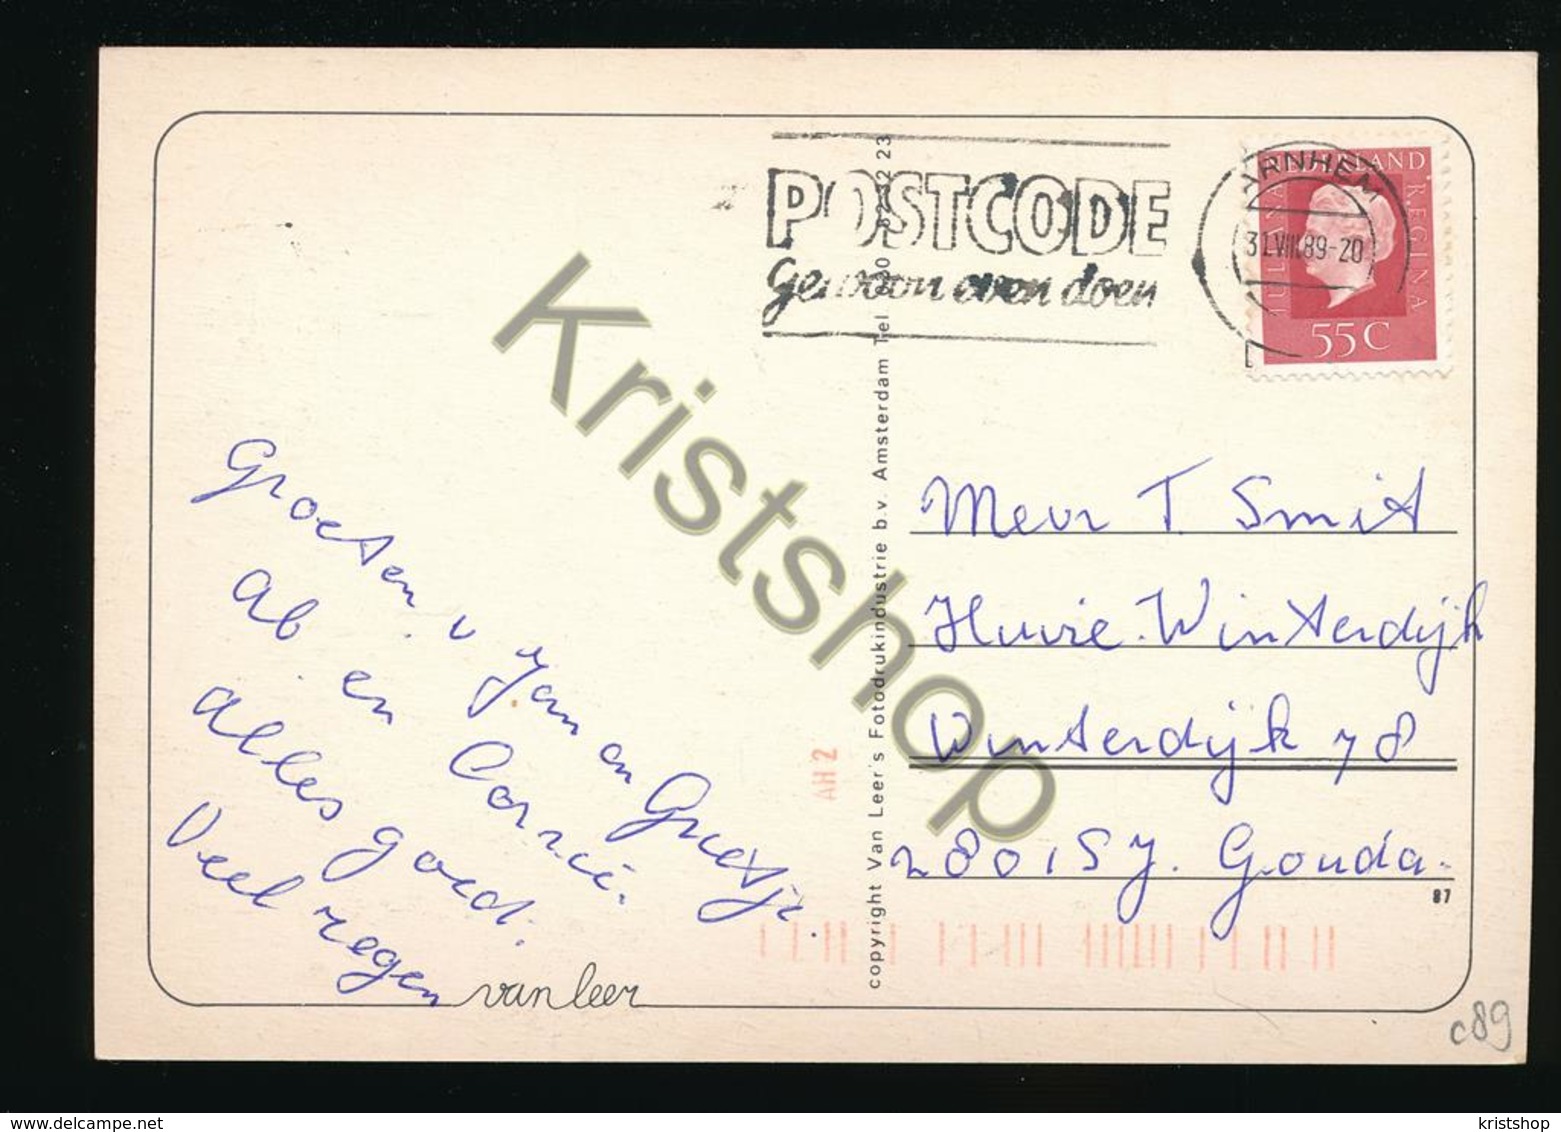 POSTCODE
Gewoon even doen
ARNHEM
31.VIII.89-20
NEDERLAND
JULIANA
REGINA
55C
Groeten v Jan en Greetje.
Ab en Corrie.
Alles goed.
Veel regen
van leer
copyright Van Leer's Fotodrukindustrie b.v. Amsterdam Tel
AH 2
Mevr T. Smit
Huize Winterdijk
Winterdijk 78
2801SJ. Gouda.
87
c89
Kristshop
www.delcampe.net
kristshop